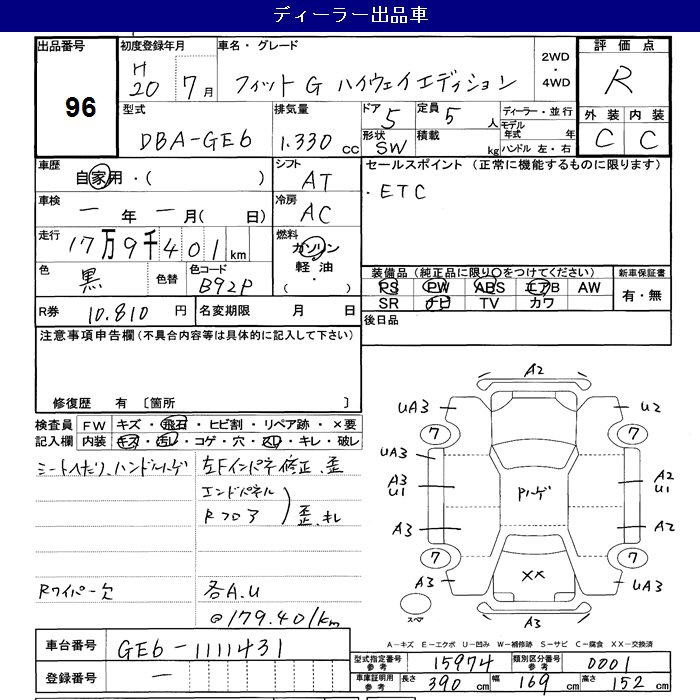 ディーラー出品車
出品番号 96
初度登録年月 H20 7月
車名・グレード フィット G ハイウェイエディション
2WD・4WD
評価点 R
外装 C 内装 C
型式 DBA-GE6
排気量 1.330 cc
ドア 5
形状 SW
定員 5 人
積載 kg
ディーラー・並行
モデル年式 年
ハンドル 左・右
車歴 自家用・( )
シフト AT
セールスポイント (正常に機能するものに限ります)
・ETC
車検 ー 年 ー 月( 日)
冷房 AC
走行 17万9千401km
燃料 ガソリン・軽油・( )
色 黒
色替
色コード B92P
装備品(純正品に限り○をつけてください)
新車保証書
PS PW ABS エアB AW
SR ナビ TV カワ
有・無
R券 10.810 円
名変期限 月 日
後日品
注意事項申告欄(不具合内容等は具体的に記入して下さい)
修復歴 有 〔箇所 〕
検査員記入欄
FW キズ・飛石・ヒビ割・リペア跡・×要
内装 キズ・汚レ・コゲ・穴・スレ・キレ・破レ
シートヘたり、ハンドルハゲ
左Fインパネ修正、歪
エンドパネル
Rフロア
歪、キレ
Rワイパー欠
各A.U
@179.401km
A2
UA3
U2
7
7
UA3
A3
U1
A2
U1
Pハゲ
A3
A2
7
7
XX
A3
UA3
スペア
A3
A-キズ E-エクボ U-凹み W-補修跡 S-サビ C-腐食 XX-交換済
車台番号 GE6-1111431
登録番号 ー
型式指定番号参考 15974
類別区分番号参考 0001
車庫証明用参考 長さ 390 cm 幅 169 cm 高さ 152 cm